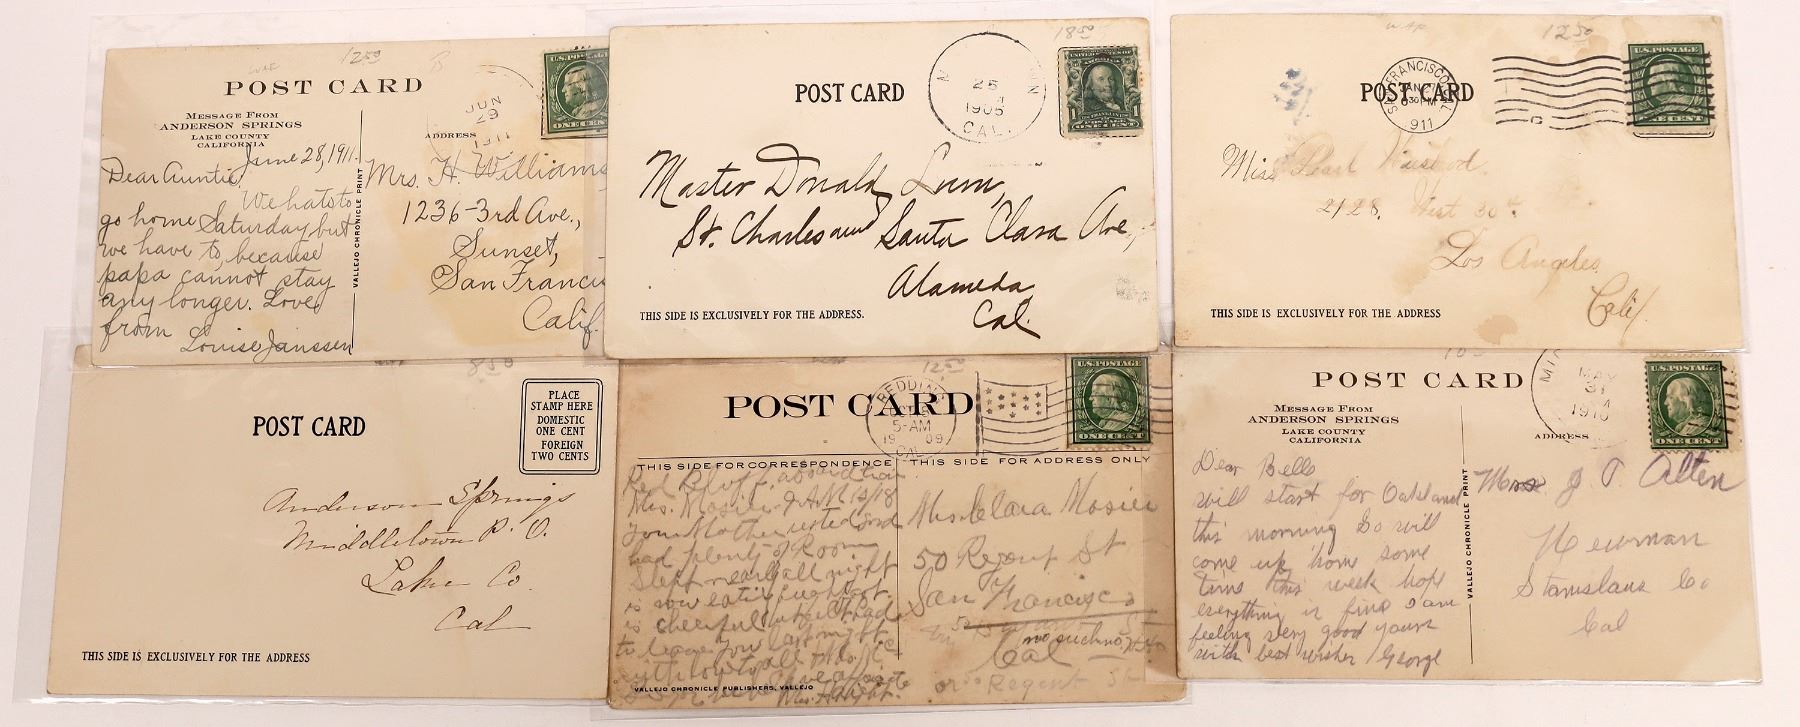 12 50
POST CARD
MESSAGE FROM
ANDERSON SPRINGS
LAKE COUNTY
CALIFORNIA
ADDRESS
JUN
29
1911
U.S. POSTAGE
ONE CENT
June 28, 1911.
Dear Auntie,
We hats to
go home Saturday but
we have to, because
papa cannot stay
any longer. Love
from
Louise Janssen
VALLEJO CHRONICLE PRINT
Mrs. H. Williams
1236-3rd Ave.,
Sunset,
San Francis
Calif.
18 50
POST CARD
25
1905
CAL.
1
ONE CENT
Master Donald Lum,
St. Charles and Santa Clara Ave.,
Alameda,
Cal.
THIS SIDE IS EXCLUSIVELY FOR THE ADDRESS.
WAF
12 50
POST CARD
SAN FRANCISCO, CAL.
JAN 27
630 PM
1911
U.S. POSTAGE
ONE CENT
Miss Pearl
2128. West 30th
Los Angeles
Calif.
THIS SIDE IS EXCLUSIVELY FOR THE ADDRESS
8 50
POST CARD
PLACE
STAMP HERE
DOMESTIC
ONE CENT
FOREIGN
TWO CENTS
Anderson Springs
Middletown P. O.
Lake Co.
Cal
THIS SIDE IS EXCLUSIVELY FOR THE ADDRESS
12 50
POST CARD
REDDING
5-AM
1909
CAL.
U.S. POSTAGE
ONE CENT
THIS SIDE FOR CORRESPONDENCE
THIS SIDE FOR ADDRESS ONLY
Red Bluff
Mrs. Mosier
Your Mother rested good
had plenty of Room
Slept nearly all night
is now eating
is cheerful
to leave you last night
VALLEJO CHRONICLE PUBLISHERS, VALLEJO
Mrs. Clara Mosier
50 Regent St
San Francisco
no such no.
Cal
or 50 Regent St
POST CARD
MESSAGE FROM
ANDERSON SPRINGS
LAKE COUNTY
CALIFORNIA
ADDRESS
MAY
31
1910
U.S. POSTAGE
ONE CENT
Dear Belle
will start for Oakland
this morning So will
come up home some
time this week hope
everything is fine I am
feeling very good yours
with best wishes George
VALLEJO CHRONICLE PRINT
J. T. Alten
Newman
Stanislaus Co
Cal